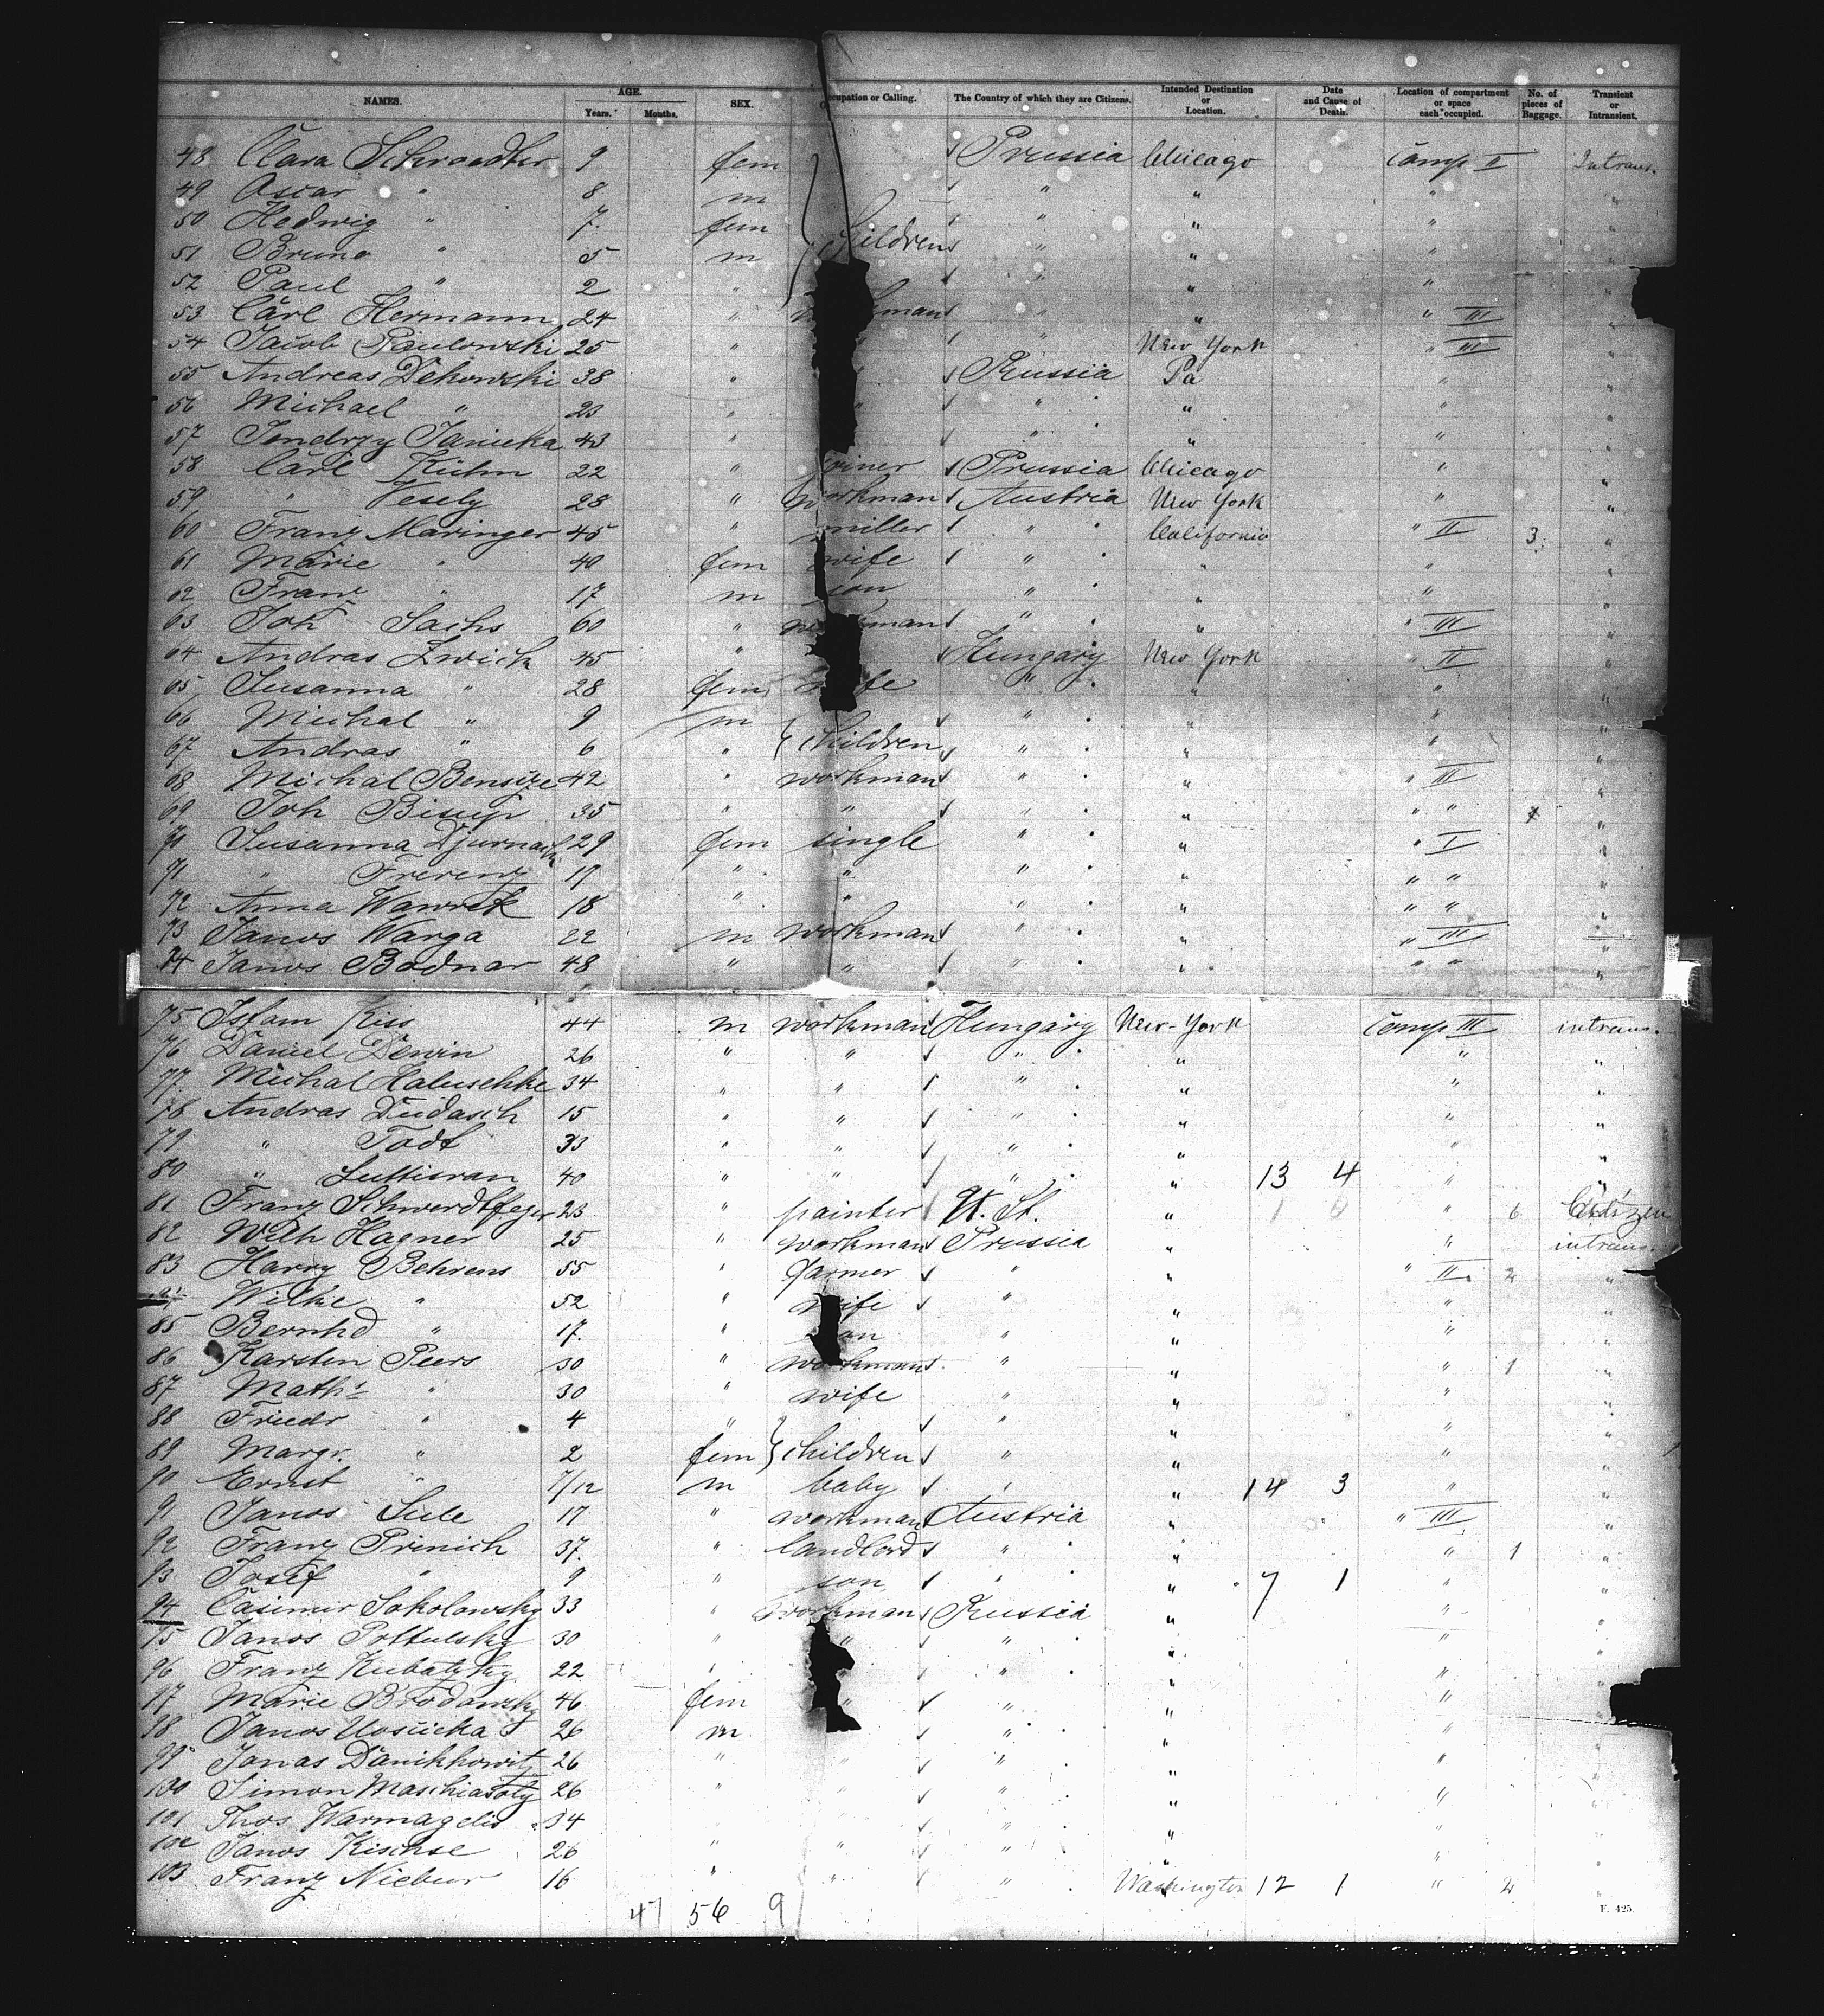 NAMES. AGE. Years. Months. SEX. Occupation or Calling. The Country of which they are Citizens. Intended Destination or Location. Date and Cause of Death. Location of compartment or space each occupied. No. of pieces of Baggage. Transient or Intransient.
48 Clara Schroedter 9 fem Prussia Chicago Comp II Intrans.
49 Oscar " 8 m " " " "
50 Hedwig " 7 fem " " " "
51 Bruno " 5 m Children " " " "
52 Paul " 2 " " " " "
53 Carl Hermann 24 " man " " " III "
54 Jacob Paulowski 25 " " " New York " III "
55 Andreas Dehowski 38 " Russia Pa " "
56 Michael " 23 " " " " " "
57 Jendrzy Janicka 43 " " " " "
58 Carl Kühn 22 " joiner Prussia Chicago " "
59 " Vesely 28 " workman Austria New York " "
60 Franz Maringer 45 " miller " California " II 3 "
61 Marie " 40 fem wife " " " "
62 Franz " 17 m son " " " "
63 Joh Sachs 60 " man " " " III "
64 Andras Zwick 45 " Hungary New York " II "
65 Susanna " 28 fem wife " " " "
66 Michal " 9 m " " " "
67 Andras " 6 " children " " " "
68 Michal Bensize 42 " workman " " " III "
69 Joh Bisup 35 " " " " " " "
70 Susanna Djurnach 29 fem single " " " I "
71 " Frerenz 19 " " " " " " "
72 Anna Wawrek 18 " " " " " " "
73 Janos Warga 22 m workman " " " III "
74 Janos Bodnar 48 " " " " " " "
75 Isfam Kiss 44 m workman Hungary New-York Comp III intrans.
76 Daniel Denin 26 " " " " " "
77 Michal Haluschke 34 " " " " " "
78 Andras Dudasch 15 " " " " " "
79 " Todt 33 " " " " " "
80 " Luttisran 40 " " " " 13 4 " "
81 Franz Schwerdtfeger 23 " painter U. St. " 1 0 " 6 Citizen
82 Wilh Hagner 25 " workman Prussia " " intrans.
83 Harry Behrens 55 " farmer " " " II 2 "
Wilke " 52 " wife " " " "
85 Bernhd " 17 " son " " " "
86 Karsten Peers 30 " workman " " " 1 "
87 Math " 30 " wife " " " "
88 Friedr " 4 " " " " "
89 Margr. " 2 fem children " " " "
90 Ernst " 7/12 m baby " " 14 3 " "
91 Janos Sule 17 " workman Austria " " III "
92 Franz Prinich 37 " landlord " " " 1 "
93 Josef " 9 " son " " 7 1 " "
94 Casimir Sokolowsky 33 " workman Russia " " "
95 Janos Pottulsky 30 " " " " " "
96 Franz Kubatzky 22 " " " " "
97 Marie Brodowsky 46 fem " " " " "
98 Janos Uosiicka 26 m " " " "
99 Jonas Danikhowitz 26 " " " " " "
100 Simon Maschiasoty 26 " " " " " "
101 Thos Warmagelis 34 " " " "
102 Janos Kischse 26 " " " " " "
103 Franz Niebur 16 " " " Washington 12 1 " 2 "
47 56 9
F. 425.